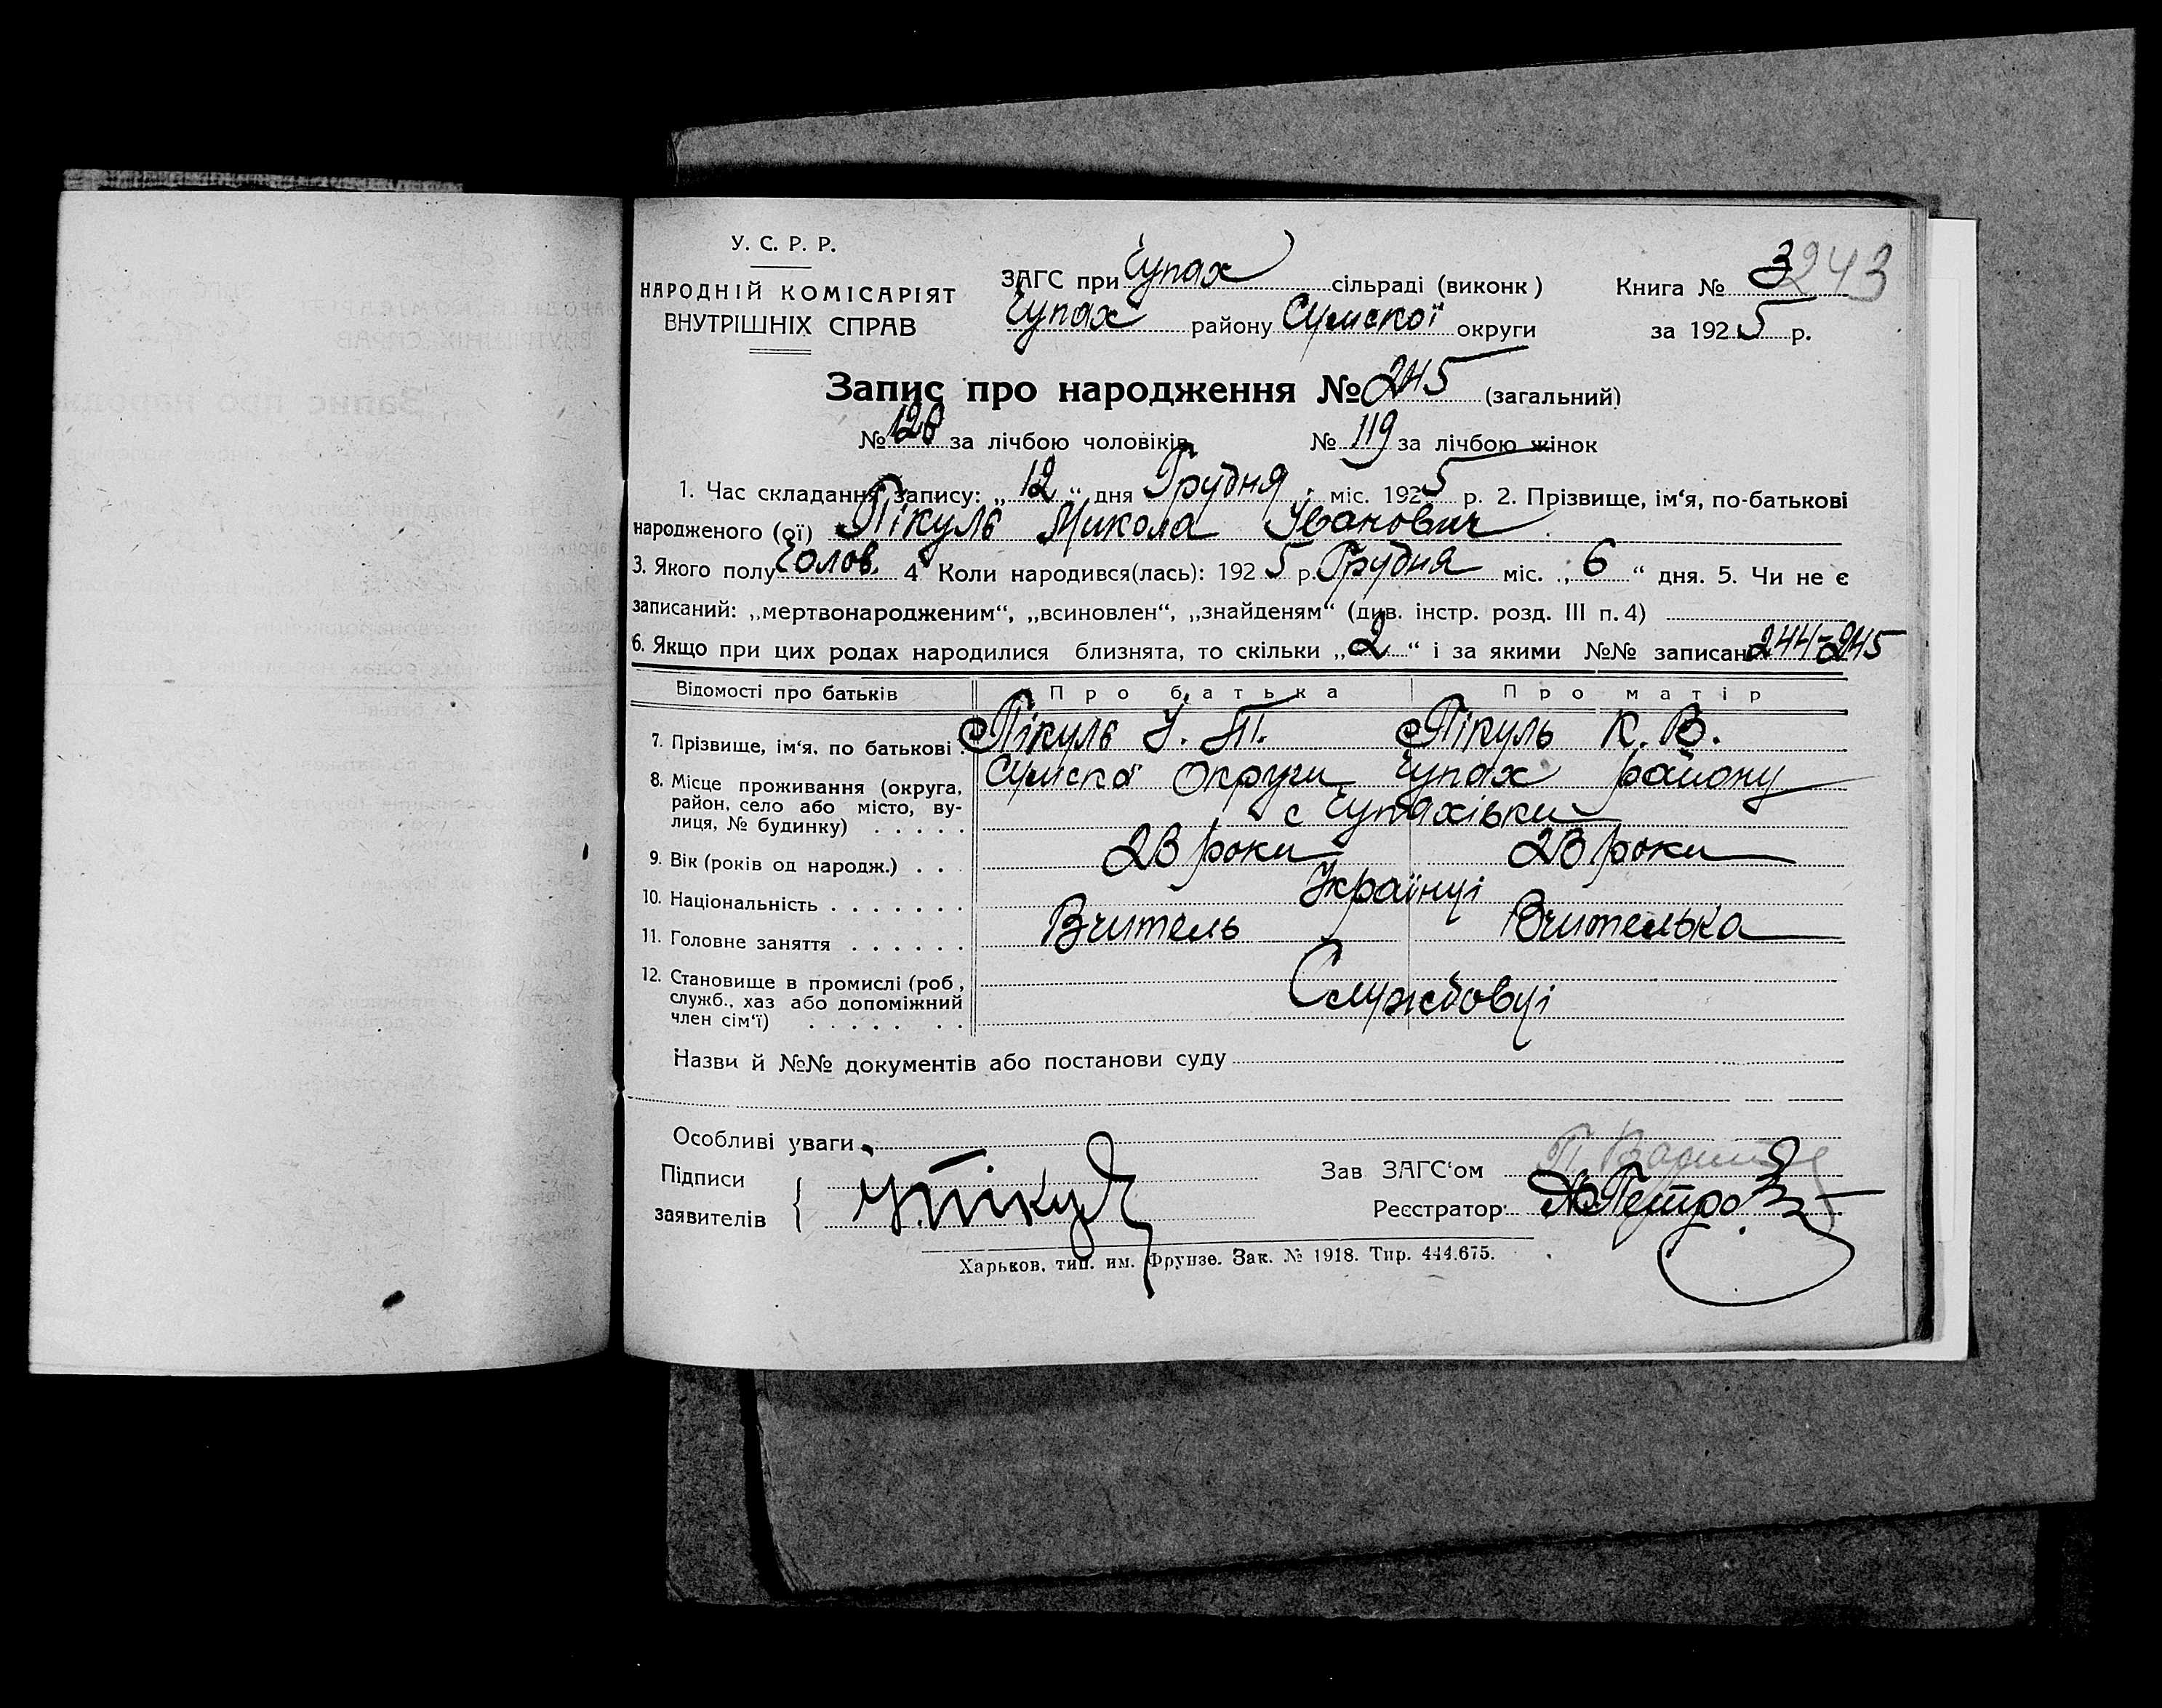 У. С. Р. Р.
НАРОДНІЙ КОМІСАРІЯТ
ВНУТРІШНІХ СПРАВ
ЗАГС при Чупах сільраді (виконк)
Чупах району Сумської округи
Книга № 3 243
за 1925 р.
Запис про народження № 245 (загальний)
№ 126 за лічбою чоловіків № 119 за лічбою жінок
1. Час складання запису: „12“ дня Грудня міс. 1925 р. 2. Прізвище, ім‘я, по-батькові
народженого (ої) Пікуль Микола Іванович
3. Якого полу Чолов. 4 Коли народився(лась): 1925 р. Грудня міс. „6“ дня. 5. Чи не є
записаний: „мертвонародженим“, „всиновлен“, „знайденям“ (див. інстр. розд. III п. 4)
6. Якщо при цих родах народилися близнята, то скільки „2“ і за якими №№ записан 244-245
Відомості про батьків Про батька Про матір
7. Прізвище, ім‘я. по батькові . Пікуль І. П. Пікуль К. В.
8. Місце проживання (округа, Сумскої Округи Чупах району
район, село або місто, ву-
лиця, № будинку) . . . . . с Чупахівки
9. Вік (років од народж.) . . . 23 роки 23 роки
10. Національність . . . . . . . Українці
11. Головне заняття . . . . . . Вчитель Вчителька
12. Становище в промислі (роб,
служб., хаз або допоміжний
член сім‘ї) . . . . . . . Службовці
Назви й №№ документів або постанови суду
Особливі уваги
Підписи
заявителів { І. Пікуль
Зав ЗАГС‘ом
Реєстратор Петро
Харьков, тип. им. Фрунзе. Зак. № 1918. Тир. 444.675.